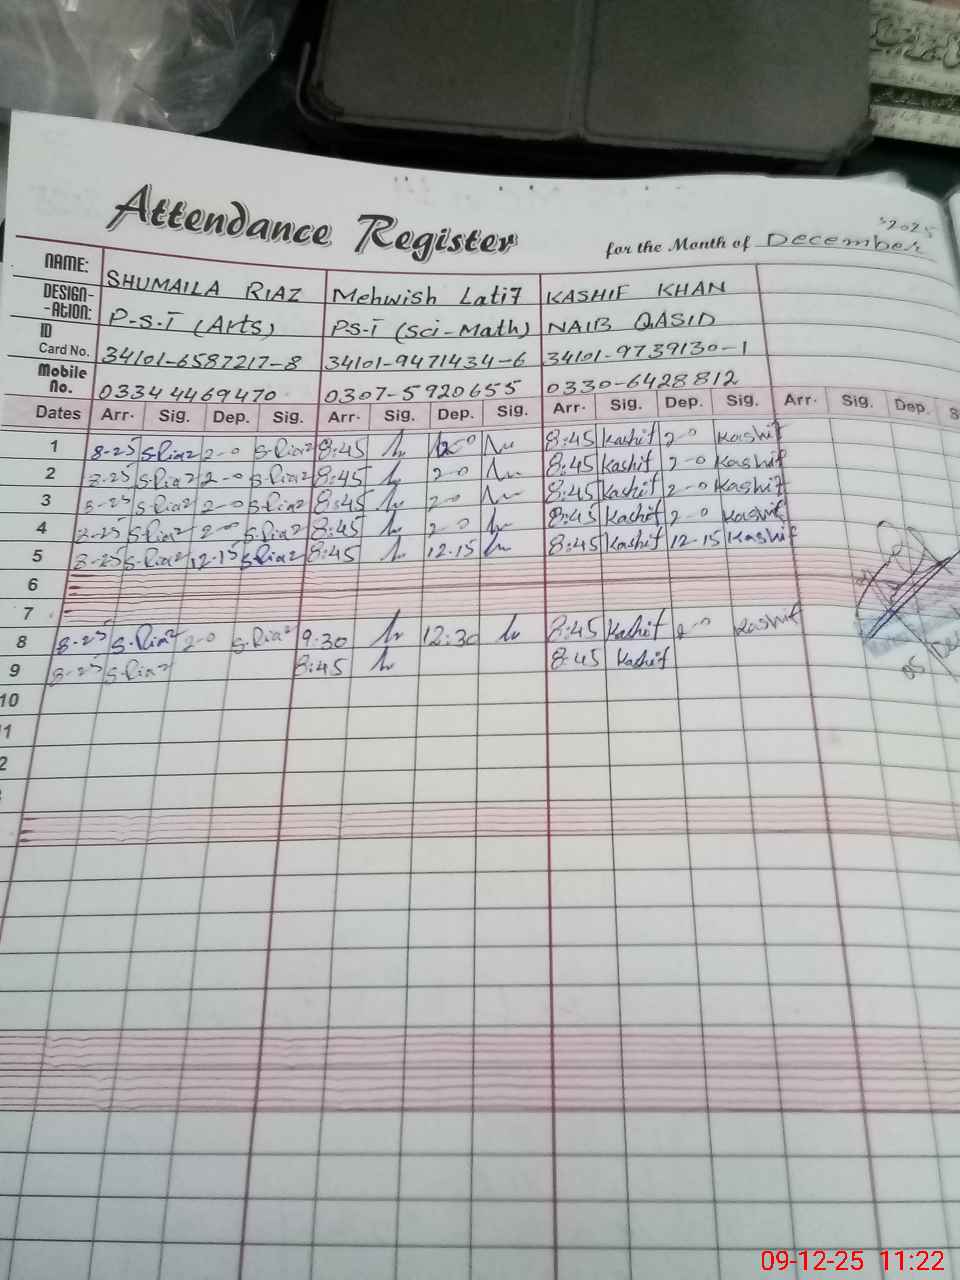 Attendance Register for the Month of December 2025
NAME: SHUMAILA RIAZ Mehwish Latif KASHIF KHAN
DESIGN-ATION: P-S-T (Arts) PS-T (Sci-Math) NAIB QASID
ID Card No. 34101-6587217-8 34101-9471434-6 34101-9739130-1
Mobile No. 0334 4469470 0307-5920655 0330-6428812
Dates Arr. Sig. Dep. Sig. Arr. Sig. Dep. Sig. Arr. Sig. Dep. Sig. Arr. Sig. Dep. S
1 8-25 S.Riaz 2-0 S.Riaz 8:45 2-0 8:45 Kashif 2-0 Kashif
2 8-25 S.Riaz 2-0 S.Riaz 8:45 2-0 8:45 Kashif 2-0 Kashif
3 8-25 S.Riaz 2-0 S.Riaz 8:45 2-0 8:45 Kashif 2-0 Kashif
4 8-25 S.Riaz 2-0 S.Riaz 8:45 2-0 8:45 Kashif 2-0 Kashif
5 8-25 S.Riaz 12-15 S.Riaz 8:45 12-15 8:45 Kashif 12-15 Kashif
6
7
8 8-25 S.Riaz 2-0 S.Riaz 9-30 12:30 8:45 Kashif 2-0 Kashif
9 8-25 S.Riaz 8:45 8:45 Kashif
10
1
2
09-12-25 11:22